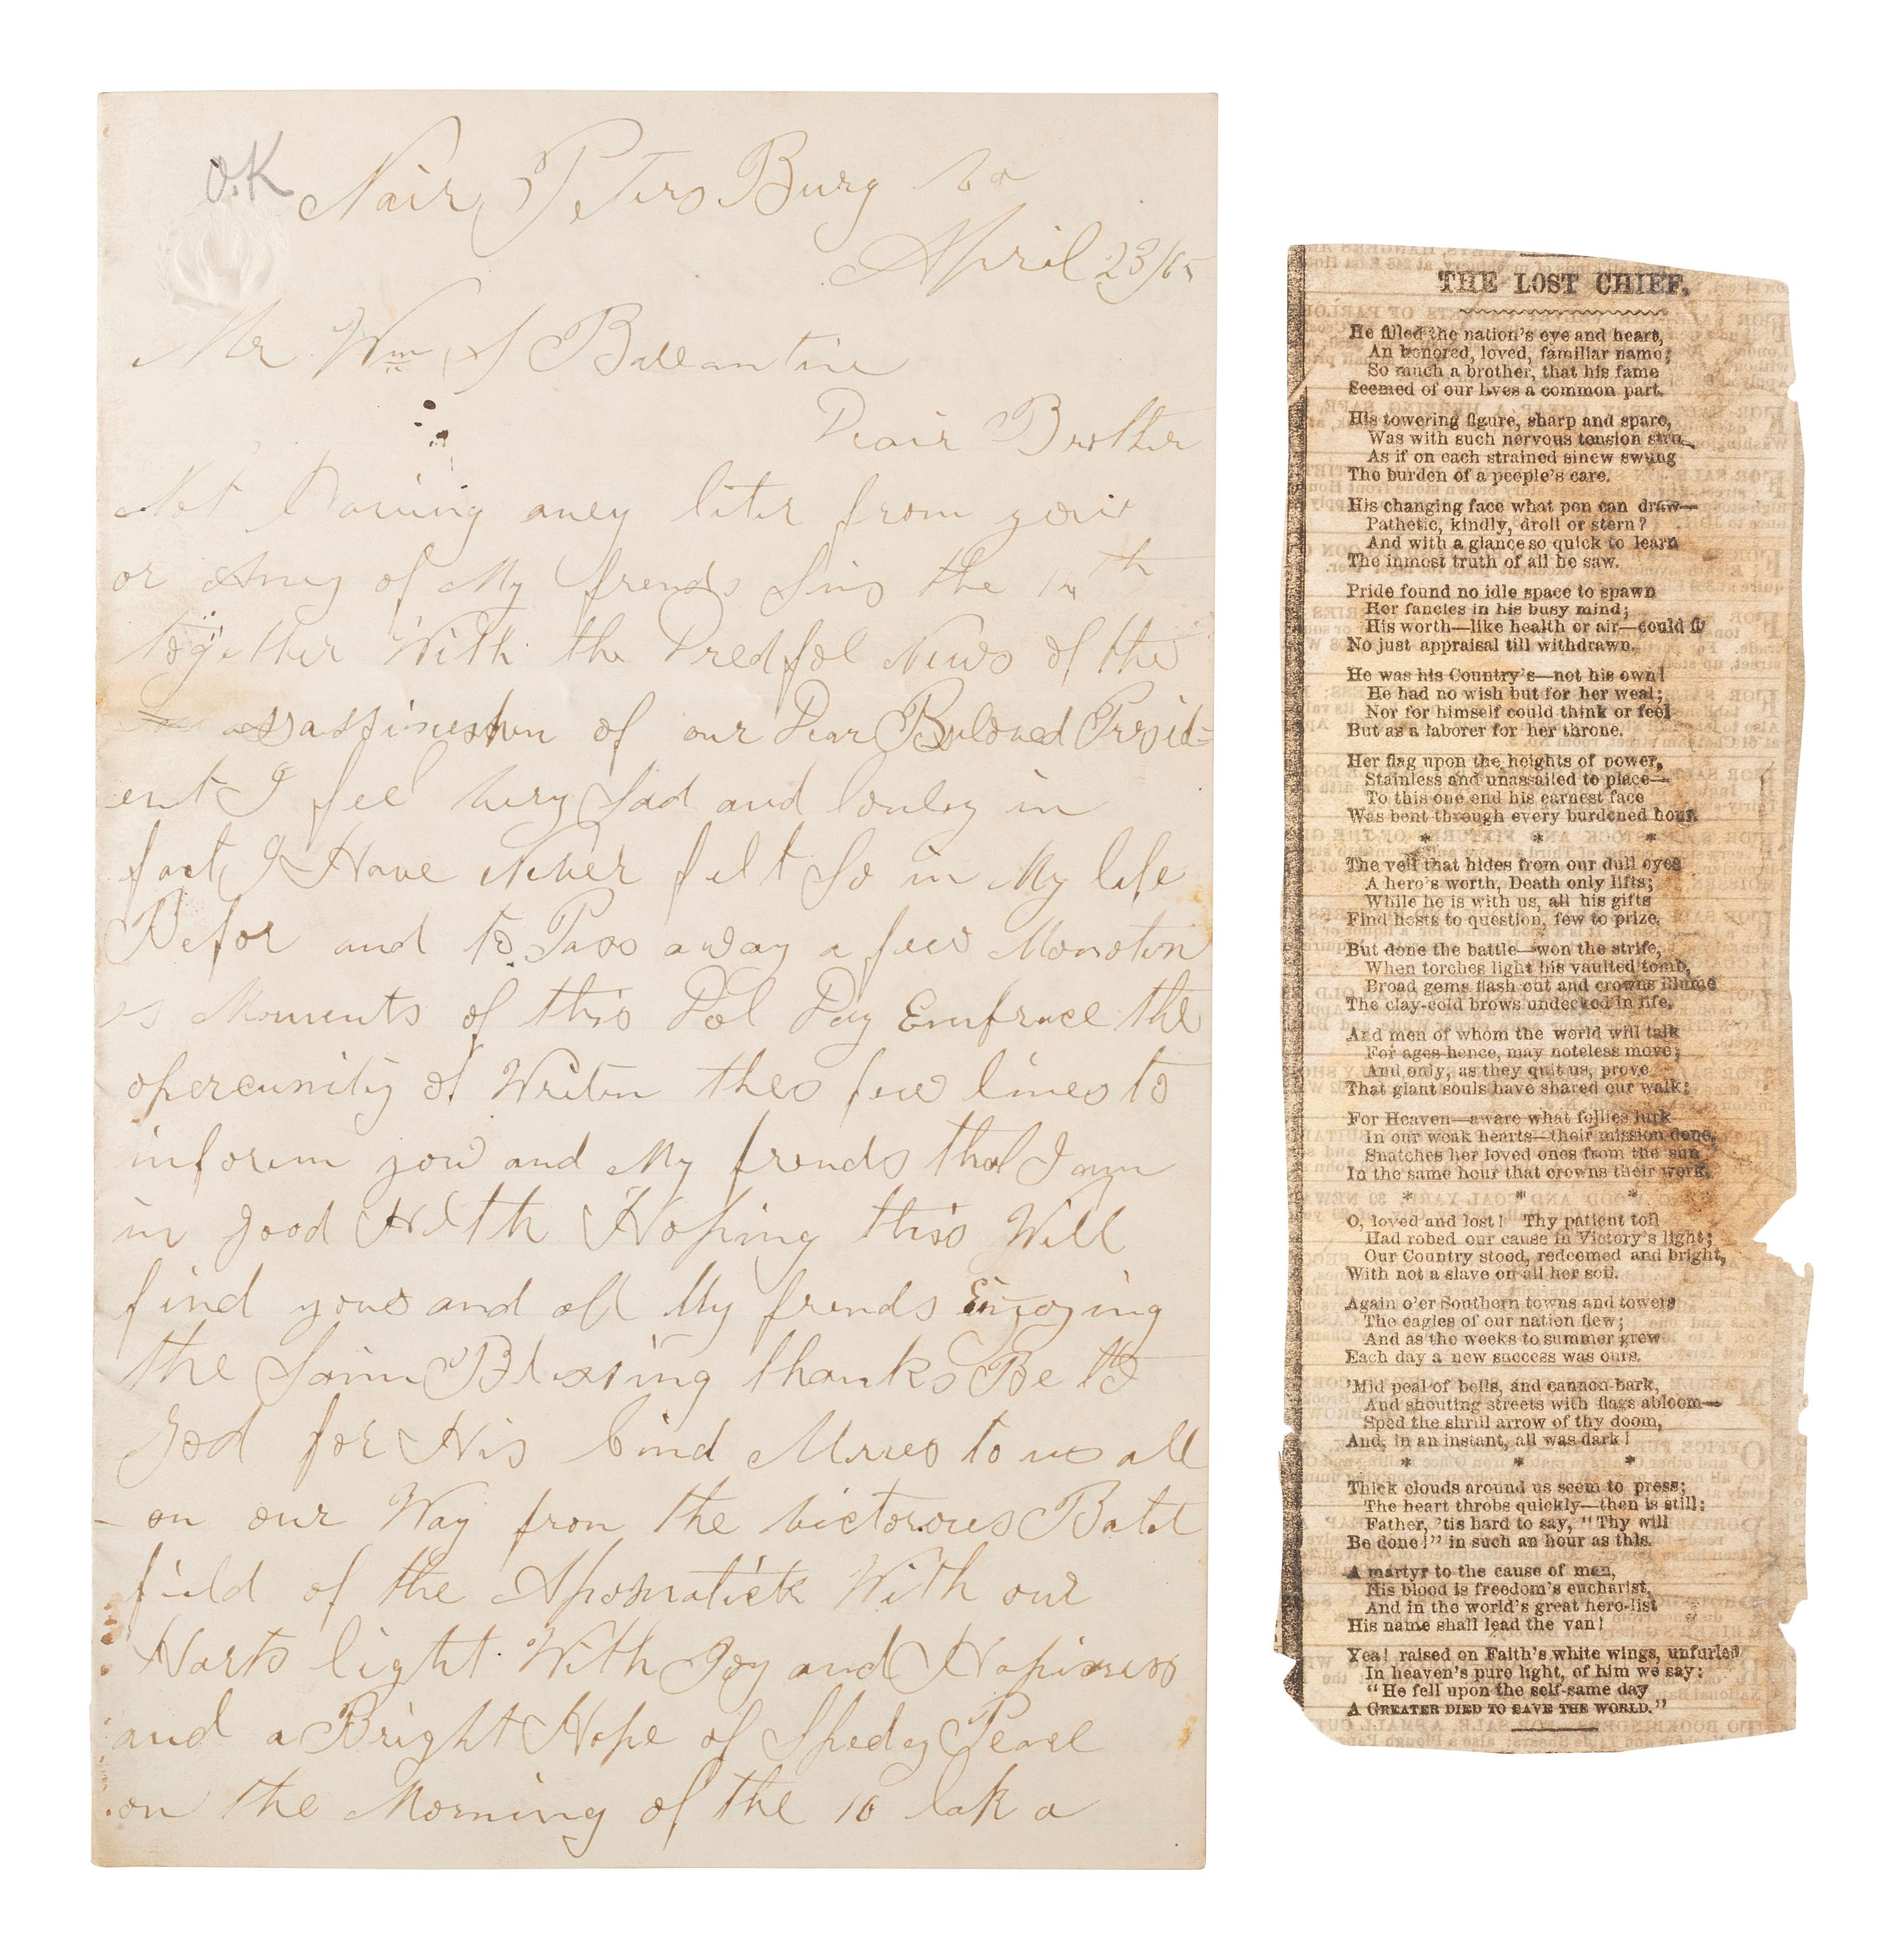 O.K
Nair Peters Burg Va
April 23/65
Mr Wm S Ballantine
Deair Brother
Not having aney liter from youi
or Aney of My frends Sins the 14th
together With the Dredfol News of the
assassinashun of our Dear Beloved Presid=
ent I feel very Sad and lonley in
fact I Have Never felt So in My life
Befor and to Pass away a few Monoton
es Moments of this Dol Day Embrace the
opercunity of Writen thes few lines to
inform you and My frends that I am
in good Helth Hoping this Will
find you and all My frends Enjoying
the Saim Blessing thanks Be to
God for His kind Mircs to us all
on our Way from the victorous Batel
field of the Apomatick With our
Harts light With Joy and Hapiness
and a Bright Hope of Spedey Peace
on the Morning of the 16 lak a
THE LOST CHIEF.
He filled the nation's eye and heart,
An honored, loved, familiar name;
So much a brother, that his fame
Seemed of our lives a common part.
His towering figure, sharp and spare,
Was with such nervous tension
As if on each strained sinew swung
The burden of a people's care.
His changing face what pen can draw—
Pathetic, kindly, droll or stern?
And with a glance so quick to learn
The inmost truth of all he saw.
Pride found no idle space to spawn
Her fancies in his busy mind;
His worth—like health or air—could
No just appraisal till withdrawn.
He was his Country's—not his own!
He had no wish but for her weal;
Nor for himself could think or feel
But as a laborer for her throne.
Her flag upon the heights of power,
Stainless and unassailed to place—
To this one end his earnest face
Was bent through every burdened hour.
* * *
The veil that hides from our dull eyes
A hero's worth, Death only lifts;
While he is with us, all his gifts
Find hosts to question, few to prize.
But done the battle—won the strife,
When torches light his vaulted tomb,
Broad gems flash out and crowns illume
The clay-cold brows undecked in life.
And men of whom the world will talk
For ages hence, may noteless move;
And only, as they quit us, prove
That giant souls have shared our walk;
For Heaven—aware what follies lurk
In our weak hearts—their mission done,
Snatches her loved ones from the sun
In the same hour that crowns their work.
* * *
O, loved and lost! Thy patient toil
Had robed our cause in Victory's light;
Our Country stood, redeemed and bright,
With not a slave on all her soil.
Again o'er Southern towns and towers
The eagles of our nation flew;
And as the weeks to summer grew
Each day a new success was ours.
'Mid peal of bells, and cannon-bark,
And shouting streets with flags abloom—
Sped the shrill arrow of thy doom,
And, in an instant, all was dark!
* * *
Thick clouds around us seem to press;
The heart throbs quickly—then is still;
Father, 'tis hard to say, "Thy will
Be done!" in such an hour as this.
A martyr to the cause of man,
His blood is freedom's eucharist,
And in the world's great hero-list
His name shall lead the van!
Yea! raised on Faith's white wings, unfurled
In heaven's pure light, of him we say:
"He fell upon the self-same day
A GREATER DIED TO SAVE THE WORLD."